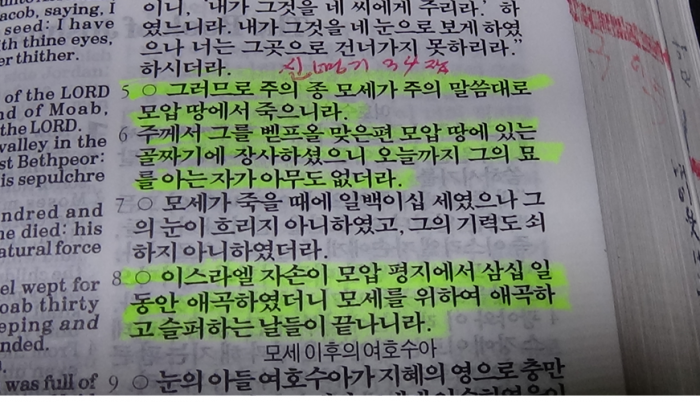 acob, saying, I
seed: I have
th thine eyes,
er thither.
of the LORD
d of Moab,
the LORD.
valley in the
st Bethpeor:
is sepulchre
ndred and
e died: his
atural force
el wept for
oab thirty
eping and
nded.
was full of
이니, '내가 그것을 네 씨에게 주리라.' 하
였느니라. 내가 그것을 네 눈으로 보게 하였
으나 너는 그곳으로 건너가지 못하리라."
하시더라. 신명기 34장
5 ○ 그러므로 주의 종 모세가 주의 말씀대로
모압 땅에서 죽으니라.
6 주께서 그를 벧프올 맞은편 모압 땅에 있는
골짜기에 장사하셨으니 오늘까지 그의 묘
를 아는 자가 아무도 없더라.
7 ○ 모세가 죽을 때에 일백이십 세였으나 그
의 눈이 흐리지 아니하였고, 그의 기력도 쇠
하지 아니하였더라.
8 ○ 이스라엘 자손이 모압 평지에서 삼십 일
동안 애곡하였더니 모세를 위하여 애곡하
고 슬퍼하는 날들이 끝나니라.
모세 이후의 여호수아
9 ○ 눈의 아들 여호수아가 지혜의 영으로 충만